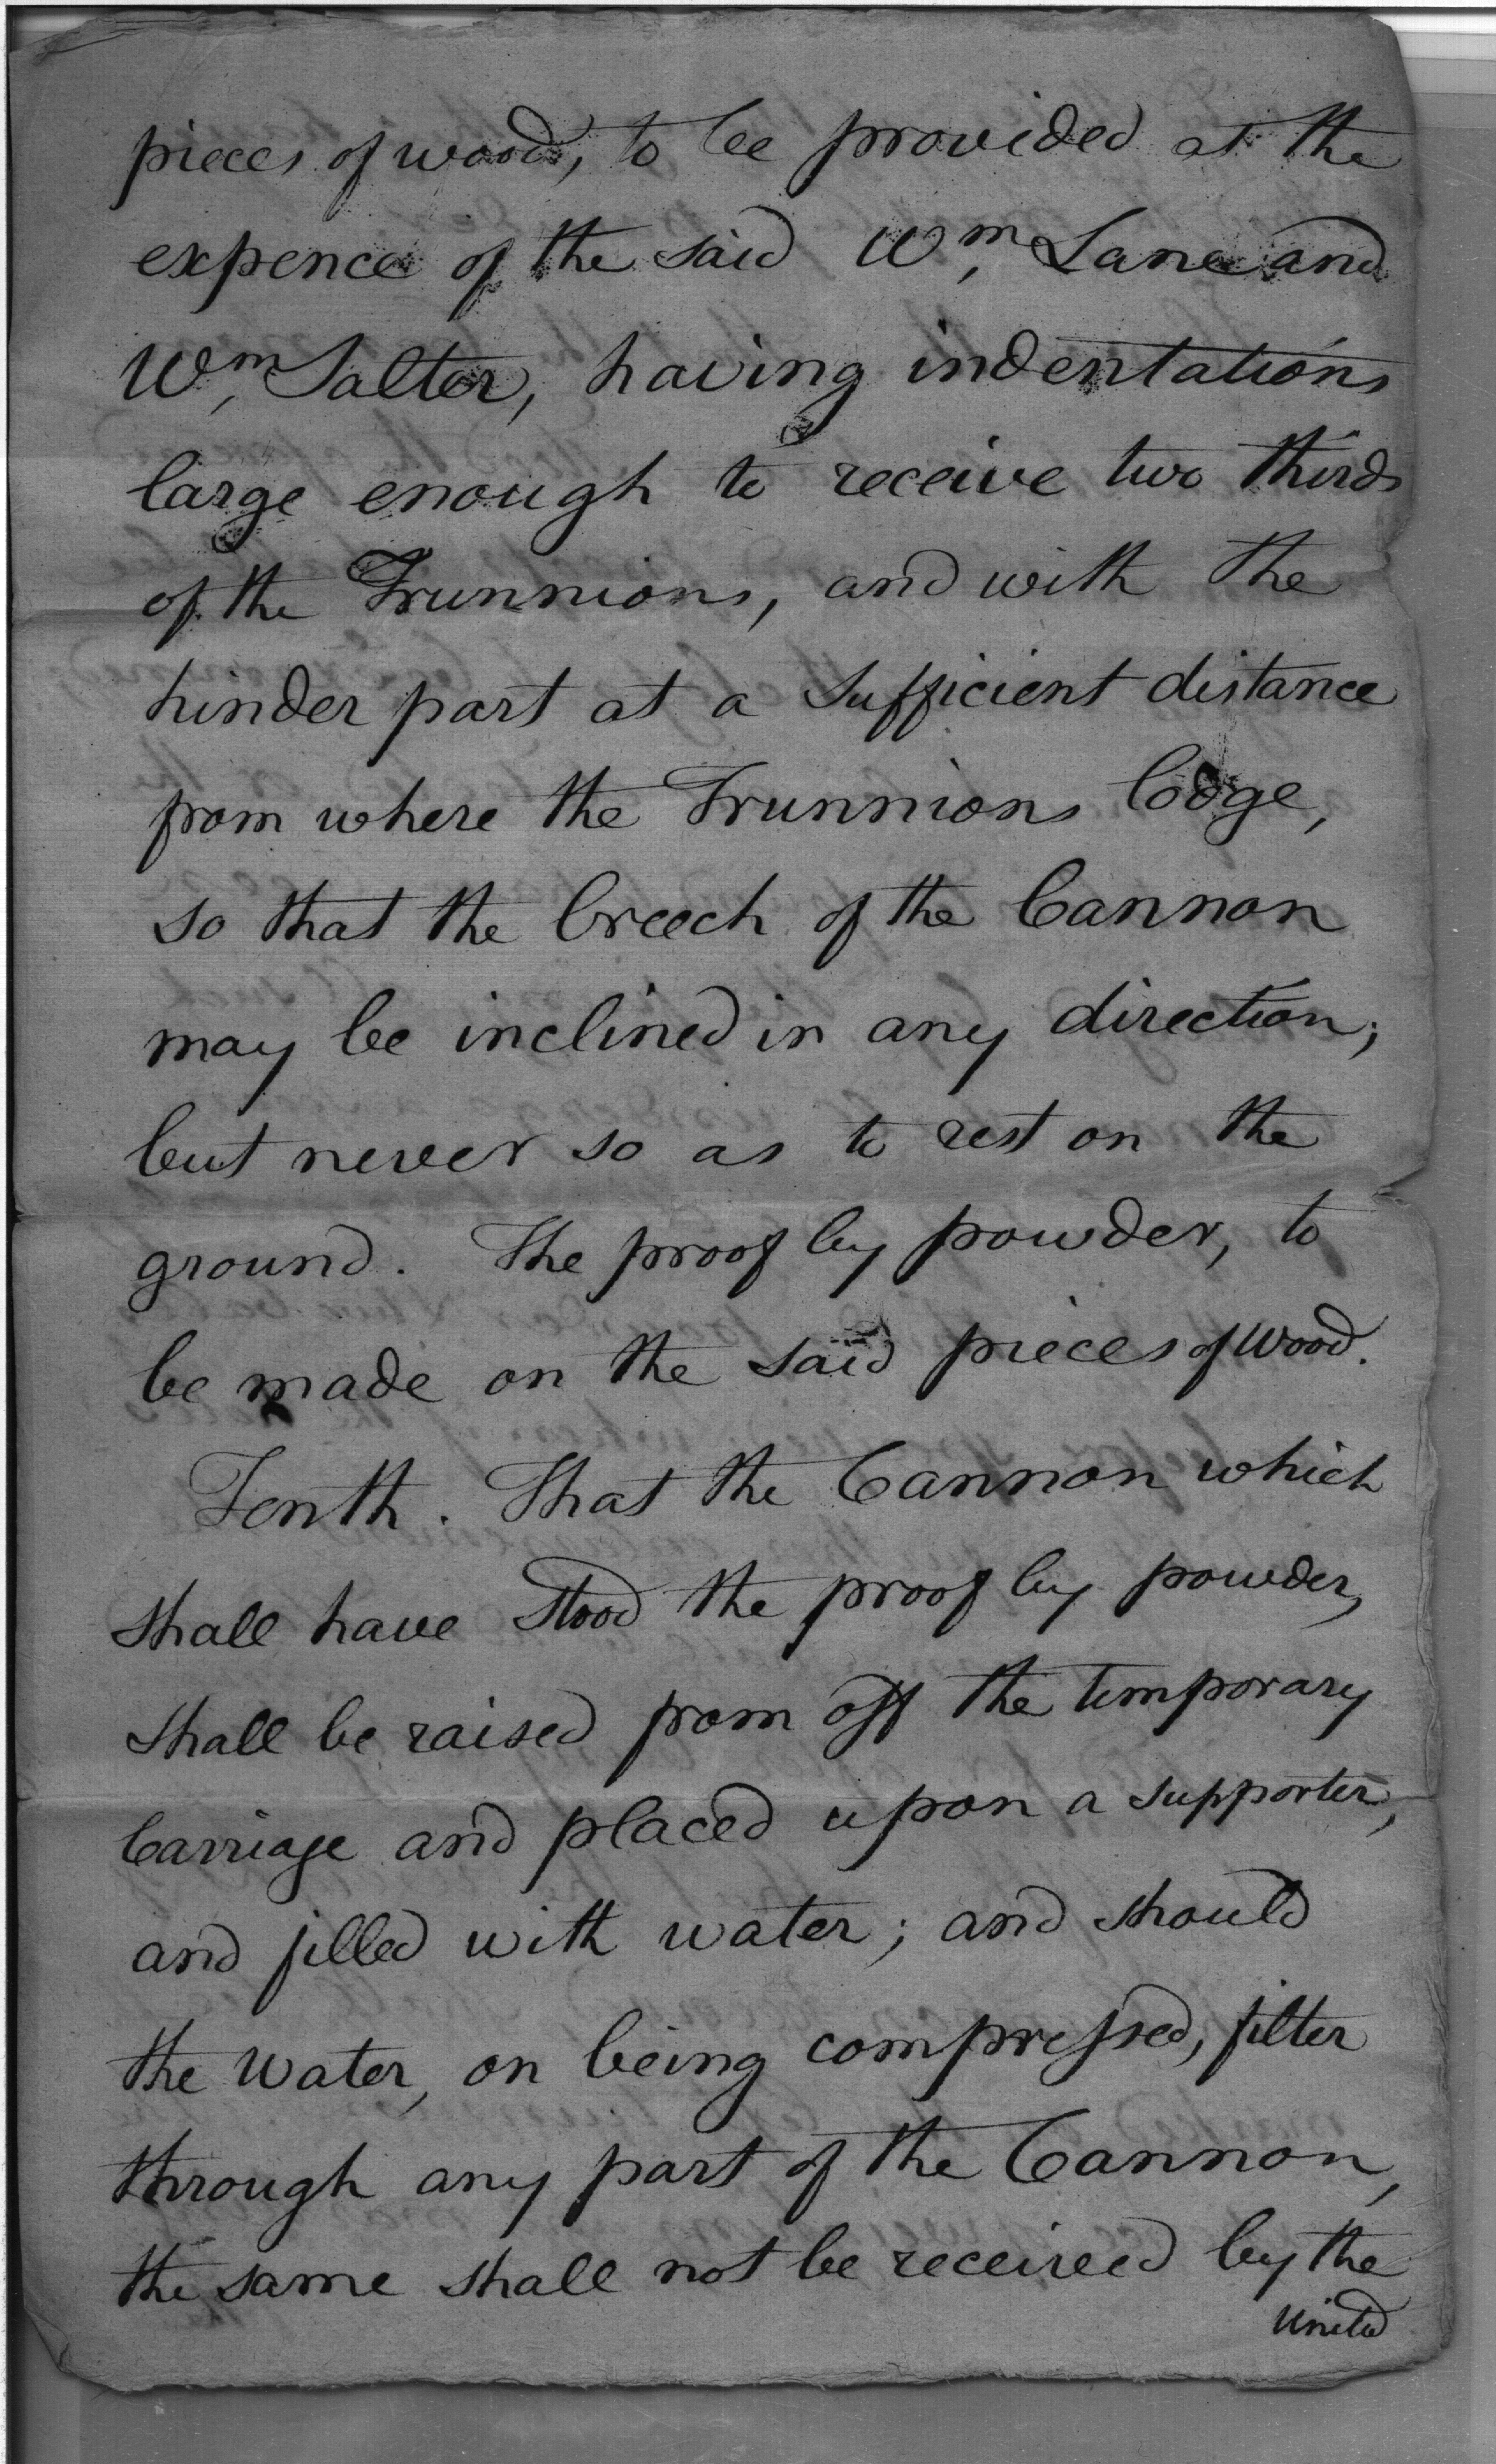 pieces of wood, to be provided at the
expence of the said Wm, Lane and
Wm, Salter, having indentations
large enough to receive two thirds
of the Trunnions, and with the
hinder part at a sufficient distance
from where the Trunnions lodge,
so that the breech of the Cannon
may be inclined in any direction;
but never so as to rest on the
ground. The proof by powder, to
be made on the said pieces of wood.
Tenth. That the Cannon which
shall have stood the proof by powder,
shall be raised from off the temporary
Carriage and placed upon a supporter,
and filled with water; and should
the water, on being compressed, filter
through any part of the Cannon,
the same shall not be received by the
United